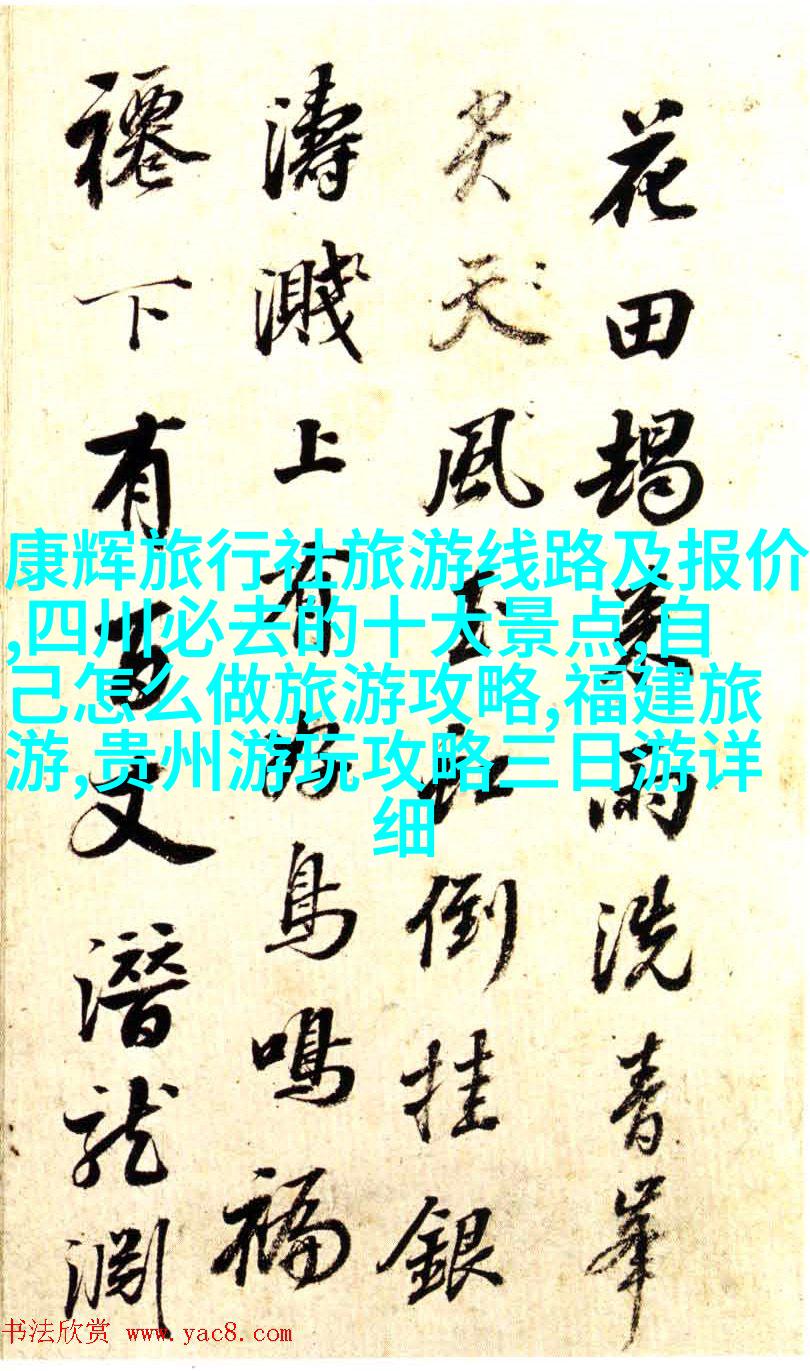 花田美雨洗青峯
尖天風玉虹倒挂銀
濤濺上有鳥鳴福
下有文潛龍淵
康辉旅行社旅游线路及报价
,四川必去的十大景点,自
己怎么做旅游攻略,福建旅
游,贵州游玩攻略三日游详
细
书法欣赏 www.yac8.com